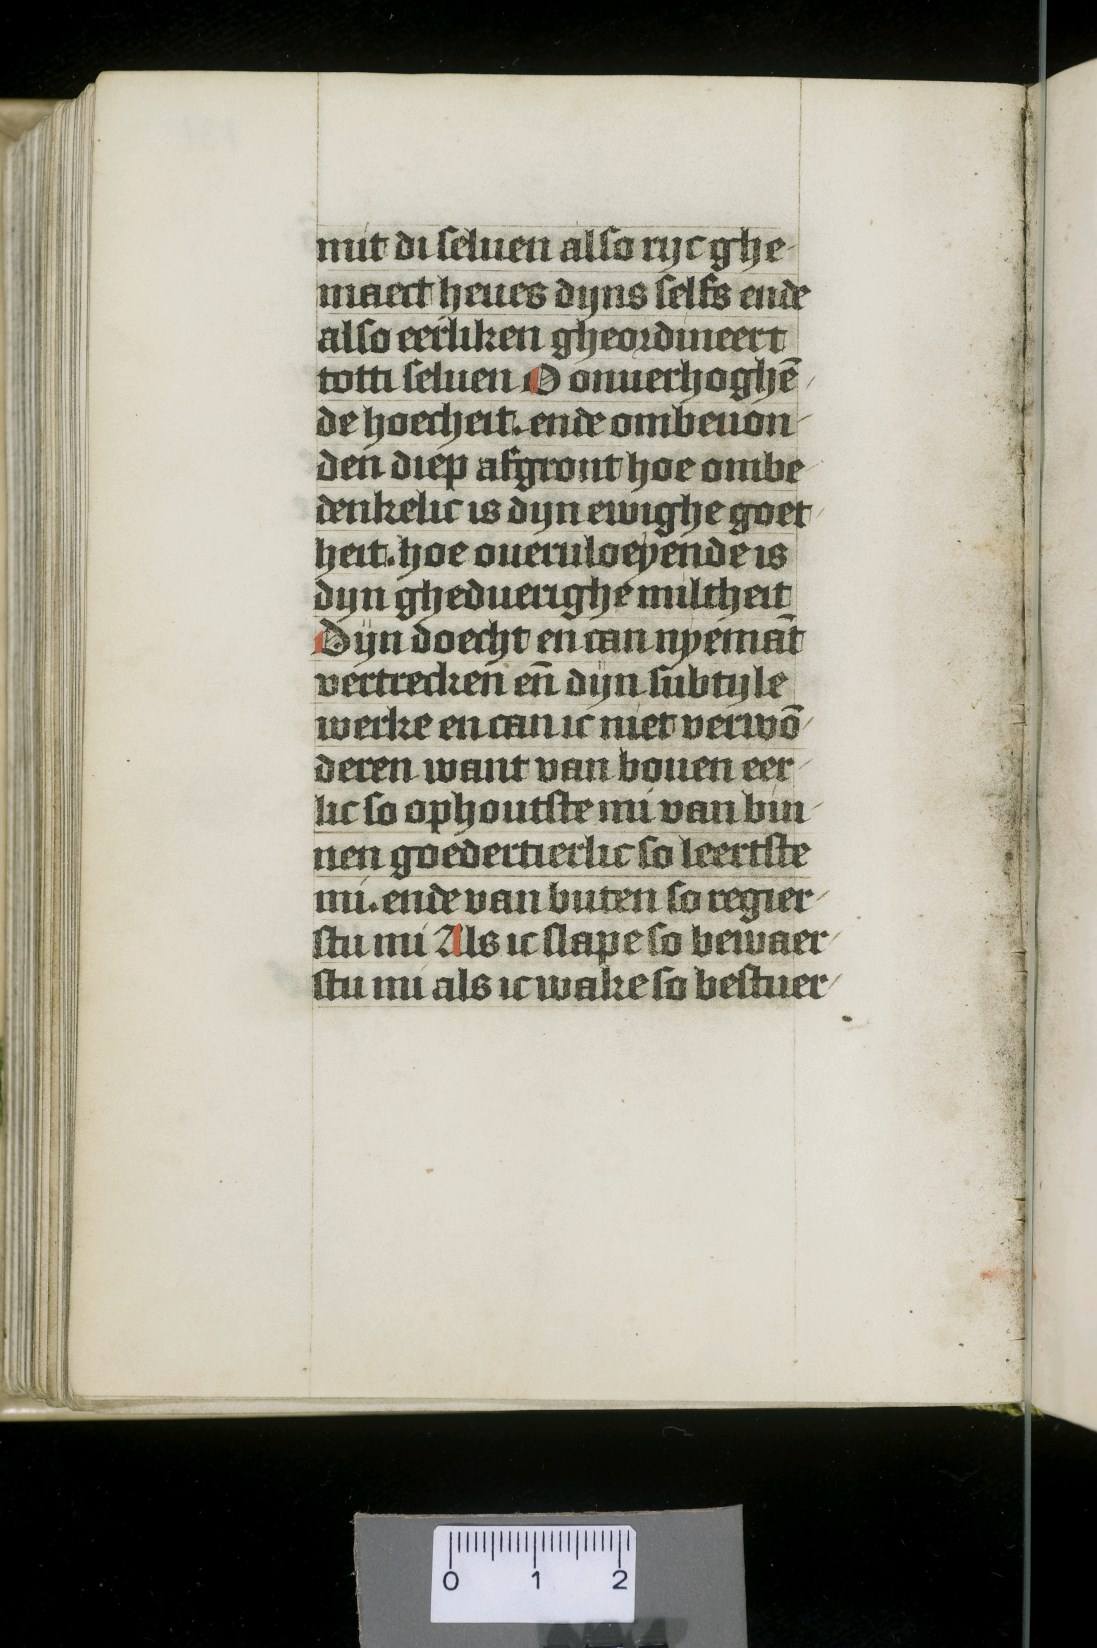 mit di seluen also ryc ghe-
maect heues dyns selfs ende
also eerliken gheordineert
totti seluen O onuerhoghē/
de hoecheit. ende ombeuon-
den diep afgront hoe ombe
denkelic is dyn ewighe goet/
heit. hoe oueruloeyende is
dyn gheduerighe miltheit
Dyn doecht en can nyemāt
vertrecken eñ dyn subtyle
werke en can ic niet verwō/
deren want van bouen eer-
lic so ophoutste mi van bin-
nen goedertierlic so leertste
mi. ende van buten so regier/
stu mi Als ic slape so bewaer/
stu mi als ic wake so bestuer/
0 1 2